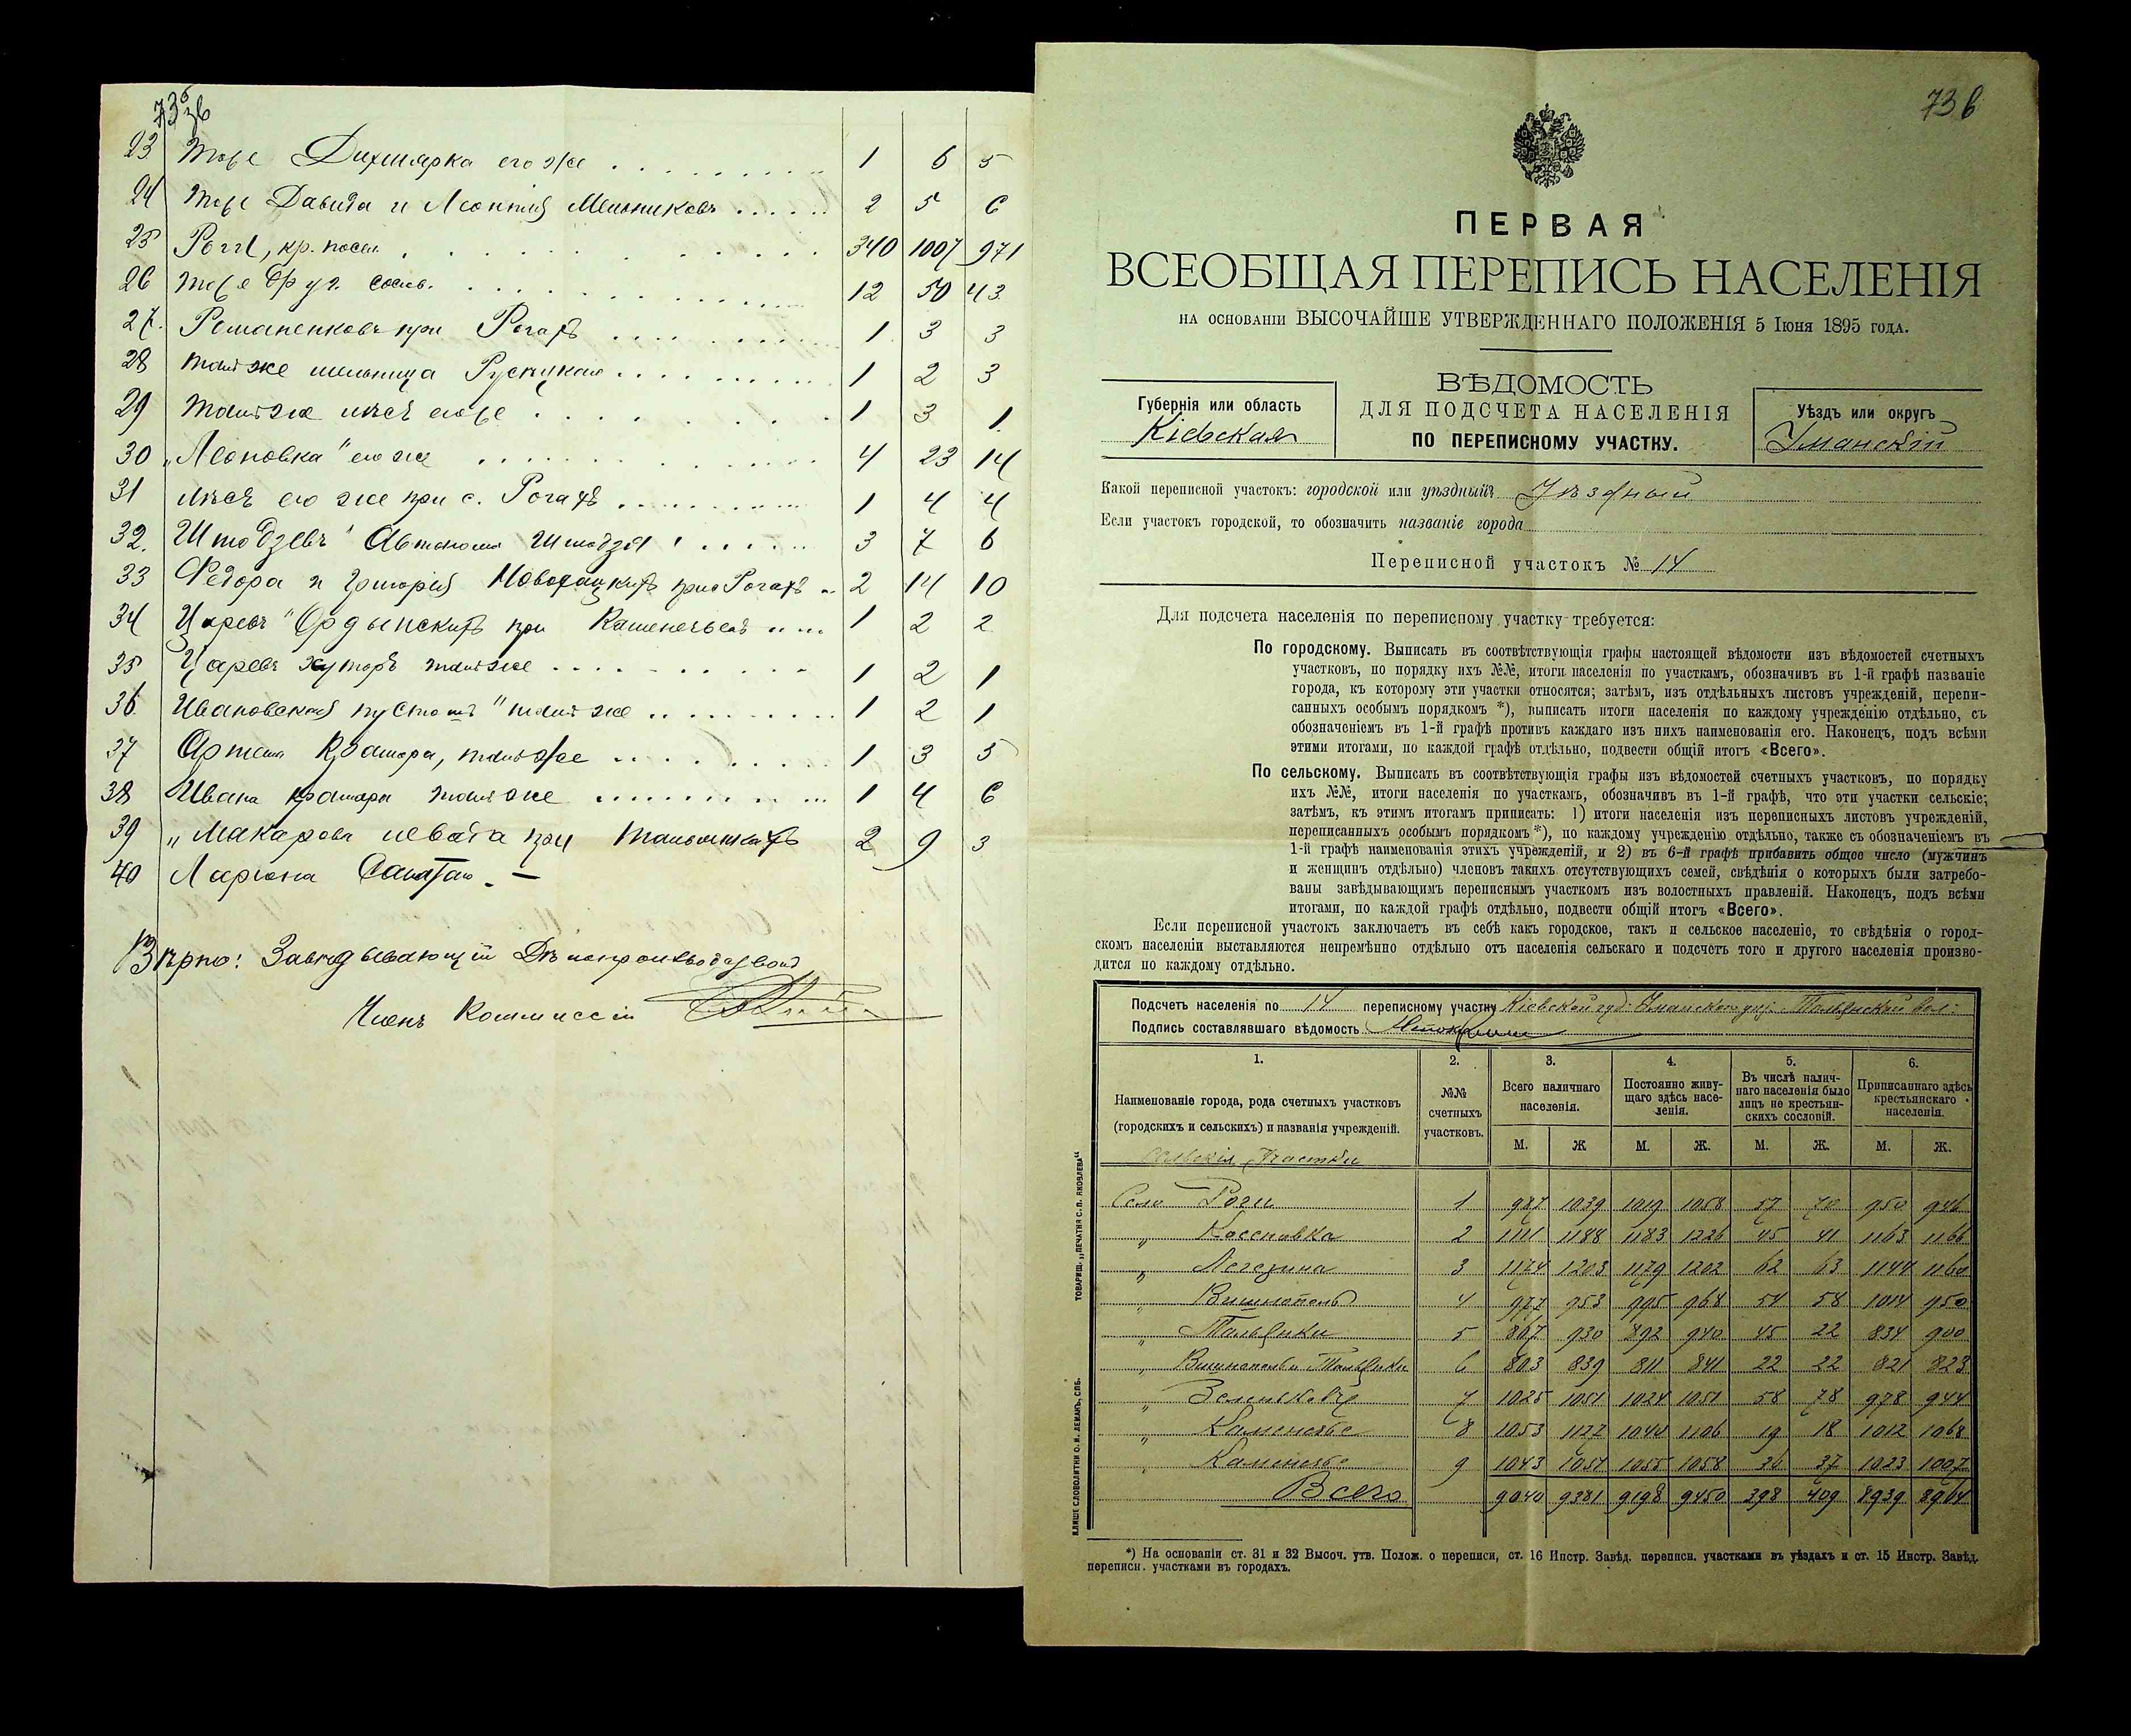 73б зв
23 тоже его же 1 6 5
24 тоже Давида и Леонтія Мельниковъ 2 5 6
25 Роги, кр. посел. 340 1007 971
26 тоже друг. сослов. 12 50 43
27. Романенковъ при Рогахъ 1 3 3
28 тамъ же мельница 1 2 3
29 тамъ же лѣсъ его же 1 3 1
30 „Леоновка" его же 4 23 14
31 лѣсъ его же при с. Рогахъ 1 4 4
32. 3 7 6
33 Федора и Григорія при Рогахъ 2 14 10
34 Царевъ при Каменечьемъ 1 2 2
35 Царевъ хуторъ тамъ же 1 2 1
36 Ивановская тамъ же 1 2 1
37 Артема Крамара, тамъ же 1 3 5
38 Ивана Крамара тамъ же 1 4 6
39 „Макарова левада при Тальянкахъ 2 9 3
40 Ларіона
Вѣрно: Завѣдывающій Дѣлопроизводствомъ
Членъ Коммиссіи
73 в
ПЕРВАЯ
ВСЕОБЩАЯ ПЕРЕПИСЬ НАСЕЛЕНІЯ
НА ОСНОВАНІИ ВЫСОЧАЙШЕ УТВЕРЖДЕННАГО ПОЛОЖЕНІЯ 5 Іюня 1895 ГОДА.
ВѢДОМОСТЬ
ДЛЯ ПОДСЧЕТА НАСЕЛЕНІЯ
ПО ПЕРЕПИСНОМУ УЧАСТКУ.
Губернія или область
Кіевская
Уѣздъ или округъ
Уманскій
Какой переписной участокъ: городской или уѣздный? Уѣздный
Если участокъ городской, то обозначить названіе города
Переписной участокъ № 14
Для подсчета населенія по переписному участку требуется:
По городскому. Выписать въ соотвѣтствующія графы настоящей вѣдомости изъ вѣдомостей счетныхъ
участковъ, по порядку ихъ №№, итоги населенія по участкамъ, обозначивъ въ 1-й графѣ названіе
города, къ которому эти участки относятся; затѣмъ, изъ отдѣльныхъ листовъ учрежденій, перепи-
санныхъ особымъ порядкомъ *), выписать итоги населенія по каждому учрежденію отдѣльно, съ
обозначеніемъ въ 1-й графѣ противъ каждаго изъ нихъ наименованія его. Наконецъ, подъ всѣми
этими итогами, по каждой графѣ отдѣльно, подвести общій итогъ «Всего».
По сельскому. Выписать въ соотвѣтствующія графы изъ вѣдомостей счетныхъ участковъ, по порядку
ихъ №№, итоги населенія по участкамъ, обозначивъ въ 1-й графѣ, что эти участки сельскіе;
затѣмъ, къ этимъ итогамъ приписать: 1) итоги населенія изъ переписныхъ листовъ учрежденій,
переписанныхъ особымъ порядкомъ *), по каждому учрежденію отдѣльно, также съ обозначеніемъ въ
1-й графѣ наименованія этихъ учрежденій, и 2) въ 6-й графѣ прибавить общее число (мужчинъ
и женщинъ отдѣльно) членовъ такихъ отсутствующихъ семей, свѣдѣнія о которыхъ были затребо-
ваны завѣдывающимъ переписнымъ участкомъ изъ волостныхъ правленій. Наконецъ, подъ всѣми
итогами, по каждой графѣ отдѣльно, подвести общій итогъ «Всего».
Если переписной участокъ заключаетъ въ себѣ какъ городское, такъ и сельское населеніе, то свѣдѣнія о город-
скомъ населеніи выставляются непремѣнно отдѣльно отъ населенія сельскаго и подсчетъ того и другого населенія произво-
дится по каждому отдѣльно.
Подсчетъ населенія по 14 переписному участку Кіевской губ. Уманскаго уѣз. Тальянской вол.
Подпись составлявшаго вѣдомость
1. 2. 3. 4. 5. 6.
Наименованіе города, рода счетныхъ участковъ (городскихъ и сельскихъ) и названія учрежденій.
№№ счетныхъ участковъ.
Всего наличнаго населенія.
Постоянно живу-щаго здѣсь насе-ленія.
Въ числѣ налич-наго населенія было лицъ не крестьян-скихъ сословій.
Приписаннаго здѣсь крестьянскаго населенія.
М. Ж М. Ж. М. Ж. М. Ж.
Сельскія Участки
Село Роги 1 987 1039 1019 1058 57 70 950 946
„ Коссеновка 2 1111 1188 1183 1226 45 41 1163 1166
„ Легезина 3 1174 1203 1179 1202 62 63 1144 1160
„ Вишнополь 4 977 953 995 968 54 58 1014 950
„ Тальянки 5 867 930 892 940 45 22 834 900
„ Вишнополь и Тальянки 6 803 839 811 841 22 22 821 823
„ Зеленьковъ 7 1025 1051 1024 1051 58 78 978 944
„ Каменечье 8 1053 1127 1040 1106 19 18 1012 1068
„ Каменечье 9 1043 1051 1055 1058 36 37 1023 1007
Всего 9040 9381 9198 9450 398 409 8939 8964
*) На основаніи ст. 31 и 32 Высоч. утв. Полож. о переписи, ст. 16 Инстр. Завѣд. переписн. участками въ уѣздахъ и ст. 15 Инстр. Завѣд.
переписн. участками въ городахъ.
КЛИШЕ СЛОВОЛИТНИ О. И. ЛЕМАНЪ, СПБ. ТОВАРИЩ. „ПЕЧАТНЯ С. П. ЯКОВЛЕВА"